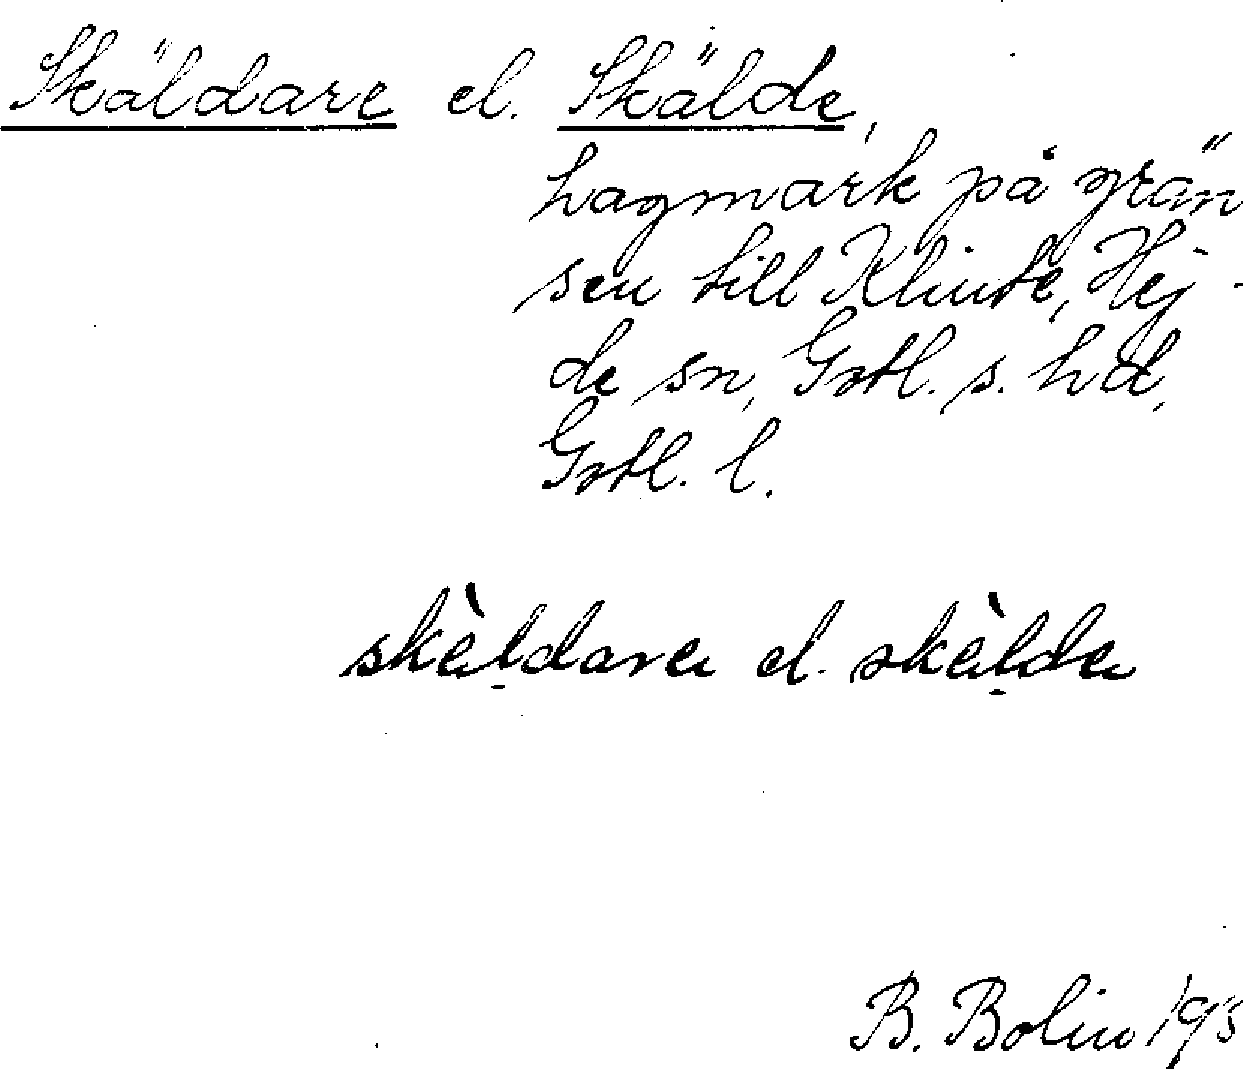 Skäldare el. Skälde,
hagmark på grän
sen till Klinte, Hej-
de sn, Gotl. s. hd,
Gotl. l.
skèldara el. skèlda
B. Bolin 193